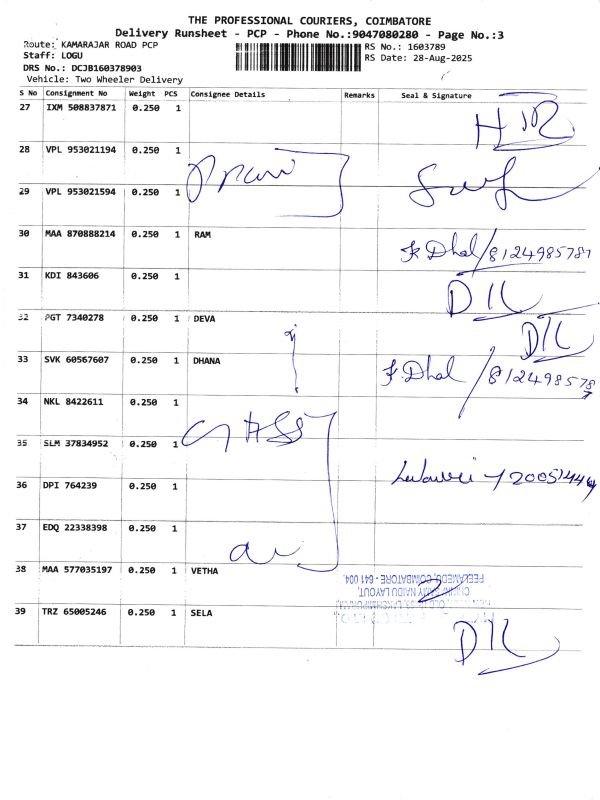 THE PROFESSIONAL COURIERS, COIMBATORE
Delivery Runsheet - PCP - Phone No.:9047080280 - Page No.:3
Route: KAMARAJAR ROAD PCP
RS No.: 1603789
Staff: LOGU
RS Date: 28-Aug-2025
DRS No.: DCJB160378903
Vehicle: Two Wheeler Delivery
S No Consignment No Weight PCS Consignee Details Remarks Seal & Signature
27 IXM 508837871 0.250 1
28 VPL 953021194 0.250 1
29 VPL 953021594 0.250 1
30 MAA 870888214 0.250 1 RAM K Dhal/8124985787
31 KDI 843606 0.250 1 DK
32 PGT 7340278 0.250 1 DEVA DK
33 SVK 60567607 0.250 1 DHANA K.Dhal / 812498578
34 NKL 8422611 0.250 1
35 SLM 37834952 0.250 1
36 DPI 764239 0.250 1
37 EDQ 22338398 0.250 1
38 MAA 577035197 0.250 1 VETHA
PEELAMEDU, COIMBATORE - 641 004.
NAIDU LAYOUT,
39 TRZ 65005246 0.250 1 SELA DK